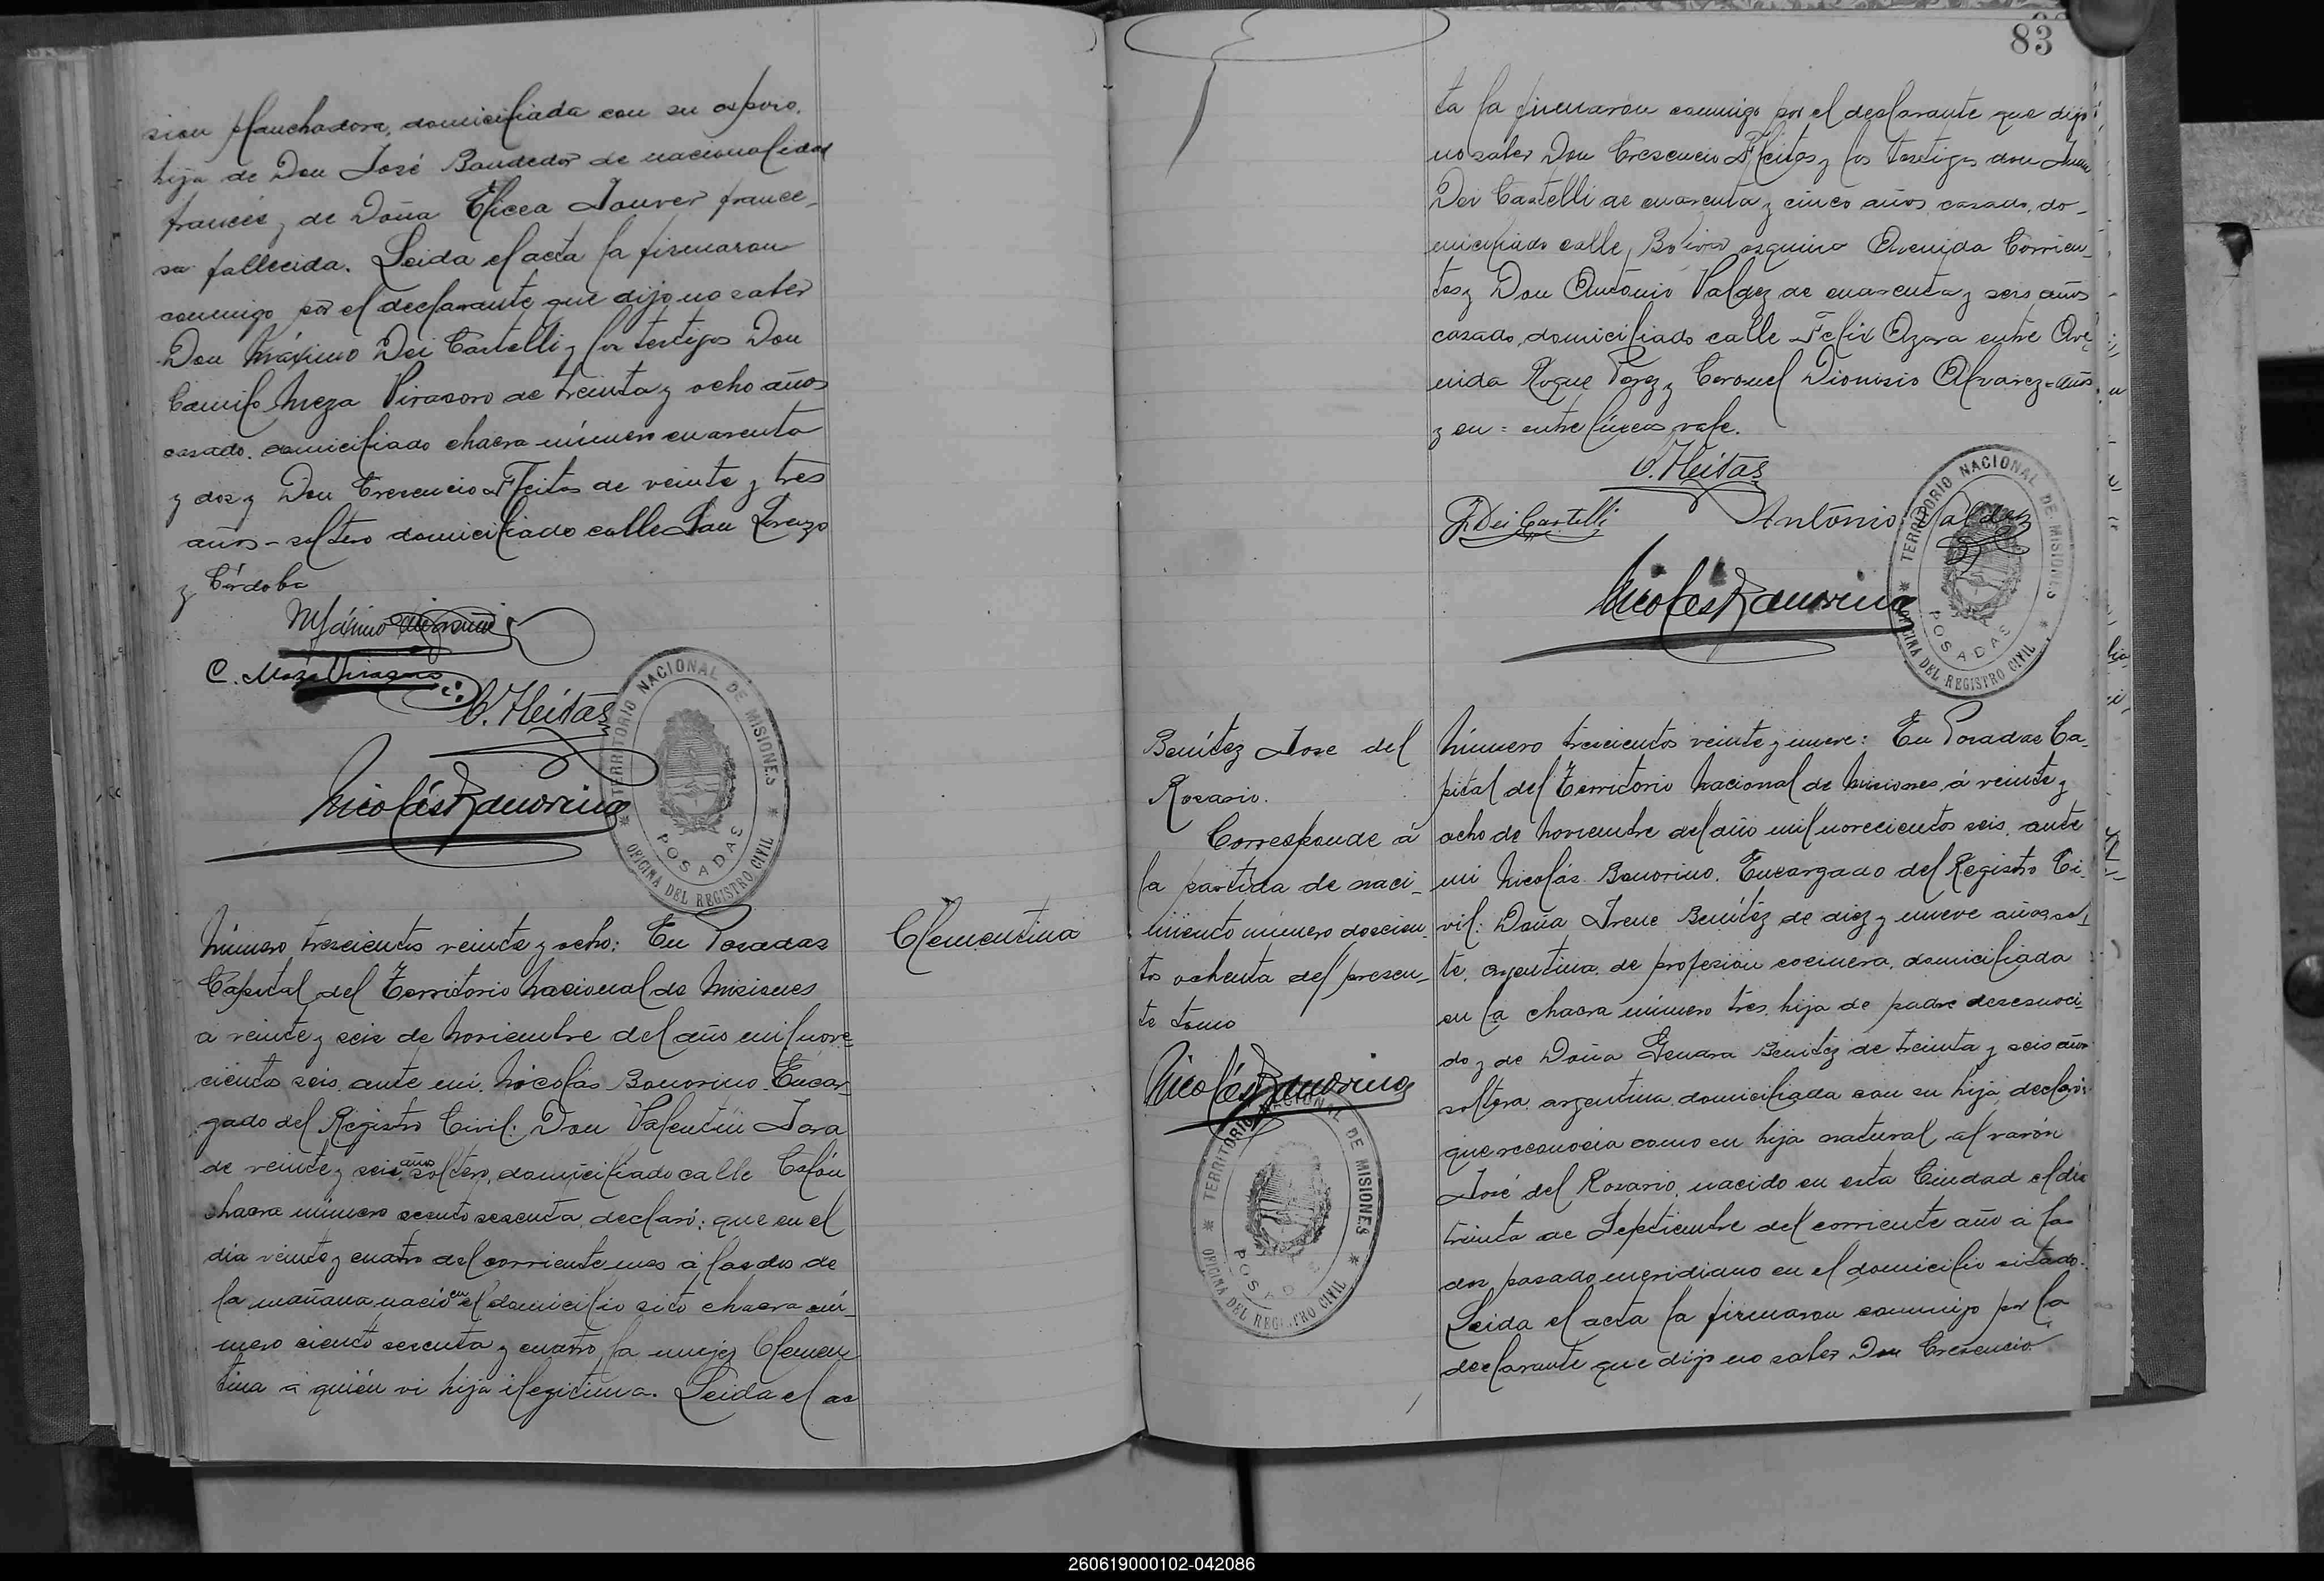 sion planchadora, domiciliada con su esposo,
hija de Don José Bandedor de nacionalidad
francés y de Doña Elicea Jouver france-
sa fallecida. Leida el acta la firmaron
conmigo por el declarante que dijo no saber
Don Máximo Dei Castelli y los testigos Don
Camilo Meza Virasoro de treinta y ocho años
casado, domiciliado chacra número cuarenta
y dos y Don Crescencio Fleitas de veinte y tres
años - soltero domiciliado calle San Lorenzo
y Córdoba
Máximo
C. Meza Virasoro
C. Fleitas
Nicolás Bonorino
TERRITORIO NACIONAL DE MISIONES
POSADAS
OFICINA DEL REGISTRO CIVIL
Número trescientos veinte y ocho: En Posadas
Capital del Territorio Nacional de Misiones
a veinte y seis de Noviembre del año mil nove-
cientos seis, ante mi, Nicolás Bonorino, Encar-
gado del Registro Civil: Don Valentin Jara
de veinte y seis años soltero, domiciliado calle Colón
chacra número ciento sesenta, declaró: que en el
dia veinte y cuatro del corriente mes á las dos de
la mañana nació en el domicilio sito chacra nú-
mero ciento sesenta y cuatro, la mujer Clemen
tina a quién vi hija ilegitima. Leida el ac
Clementina
83
ta la firmaron conmigo por el declarante que dijo
no saber Don Crescencio Fleitas y los testigos don Juan
Dei Castelli de cuarenta y cinco años, casado, do-
miciliado calle Bolivar esquina Avenida Corrien-
tes y Don Antonio Valdez de cuarenta y seis años
casado, domiciliado calle Felix Azara entre Ave-
nida Roque Perez y Coronel Dionisio Alvarez = años
y en = entre lineas, vale.
C. Fleitas
J. Dei Castelli
Antonio Valdez
Nicolás Bonorino
TERRITORIO NACIONAL DE MISIONES
POSADAS
OFICINA DEL REGISTRO CIVIL
Benítez Jose del
Rosario.
Corresponde á
la partida de naci-
miento número doscien-
tos ochenta del presen-
te tomo
Nicolás Bonorino
TERRITORIO NACIONAL DE MISIONES
POSADAS
OFICINA DEL REGISTRO CIVIL
Número trescientos veinte y nueve: En Posadas Ca-
pital del Territorio Nacional de Misiones, á veinte y
ocho de Noviembre del año mil novecientos seis, ante
mi Nicolás Bonorino, Encargado del Registro Ci-
vil: Doña Irene Benítez de diez y nueve años, sol-
te, argentina, de profesion cocinera, domiciliada
en la chacra número tres, hija de padre desconoci-
do y de Doña Genara Benítez de treinta y seis años
soltera, argentina, domiciliada con su hija, declaró:
que reconocia como su hijo natural al varón
José del Rosario, nacido en esta Ciudad el dia
treinta de Septiembre del corriente año á las
dos pasado meridiano en el domicilio citado.
Leida el acta la firmaron conmigo por la
declarante que dijo no saber Don Crescencio
260619000102-042086